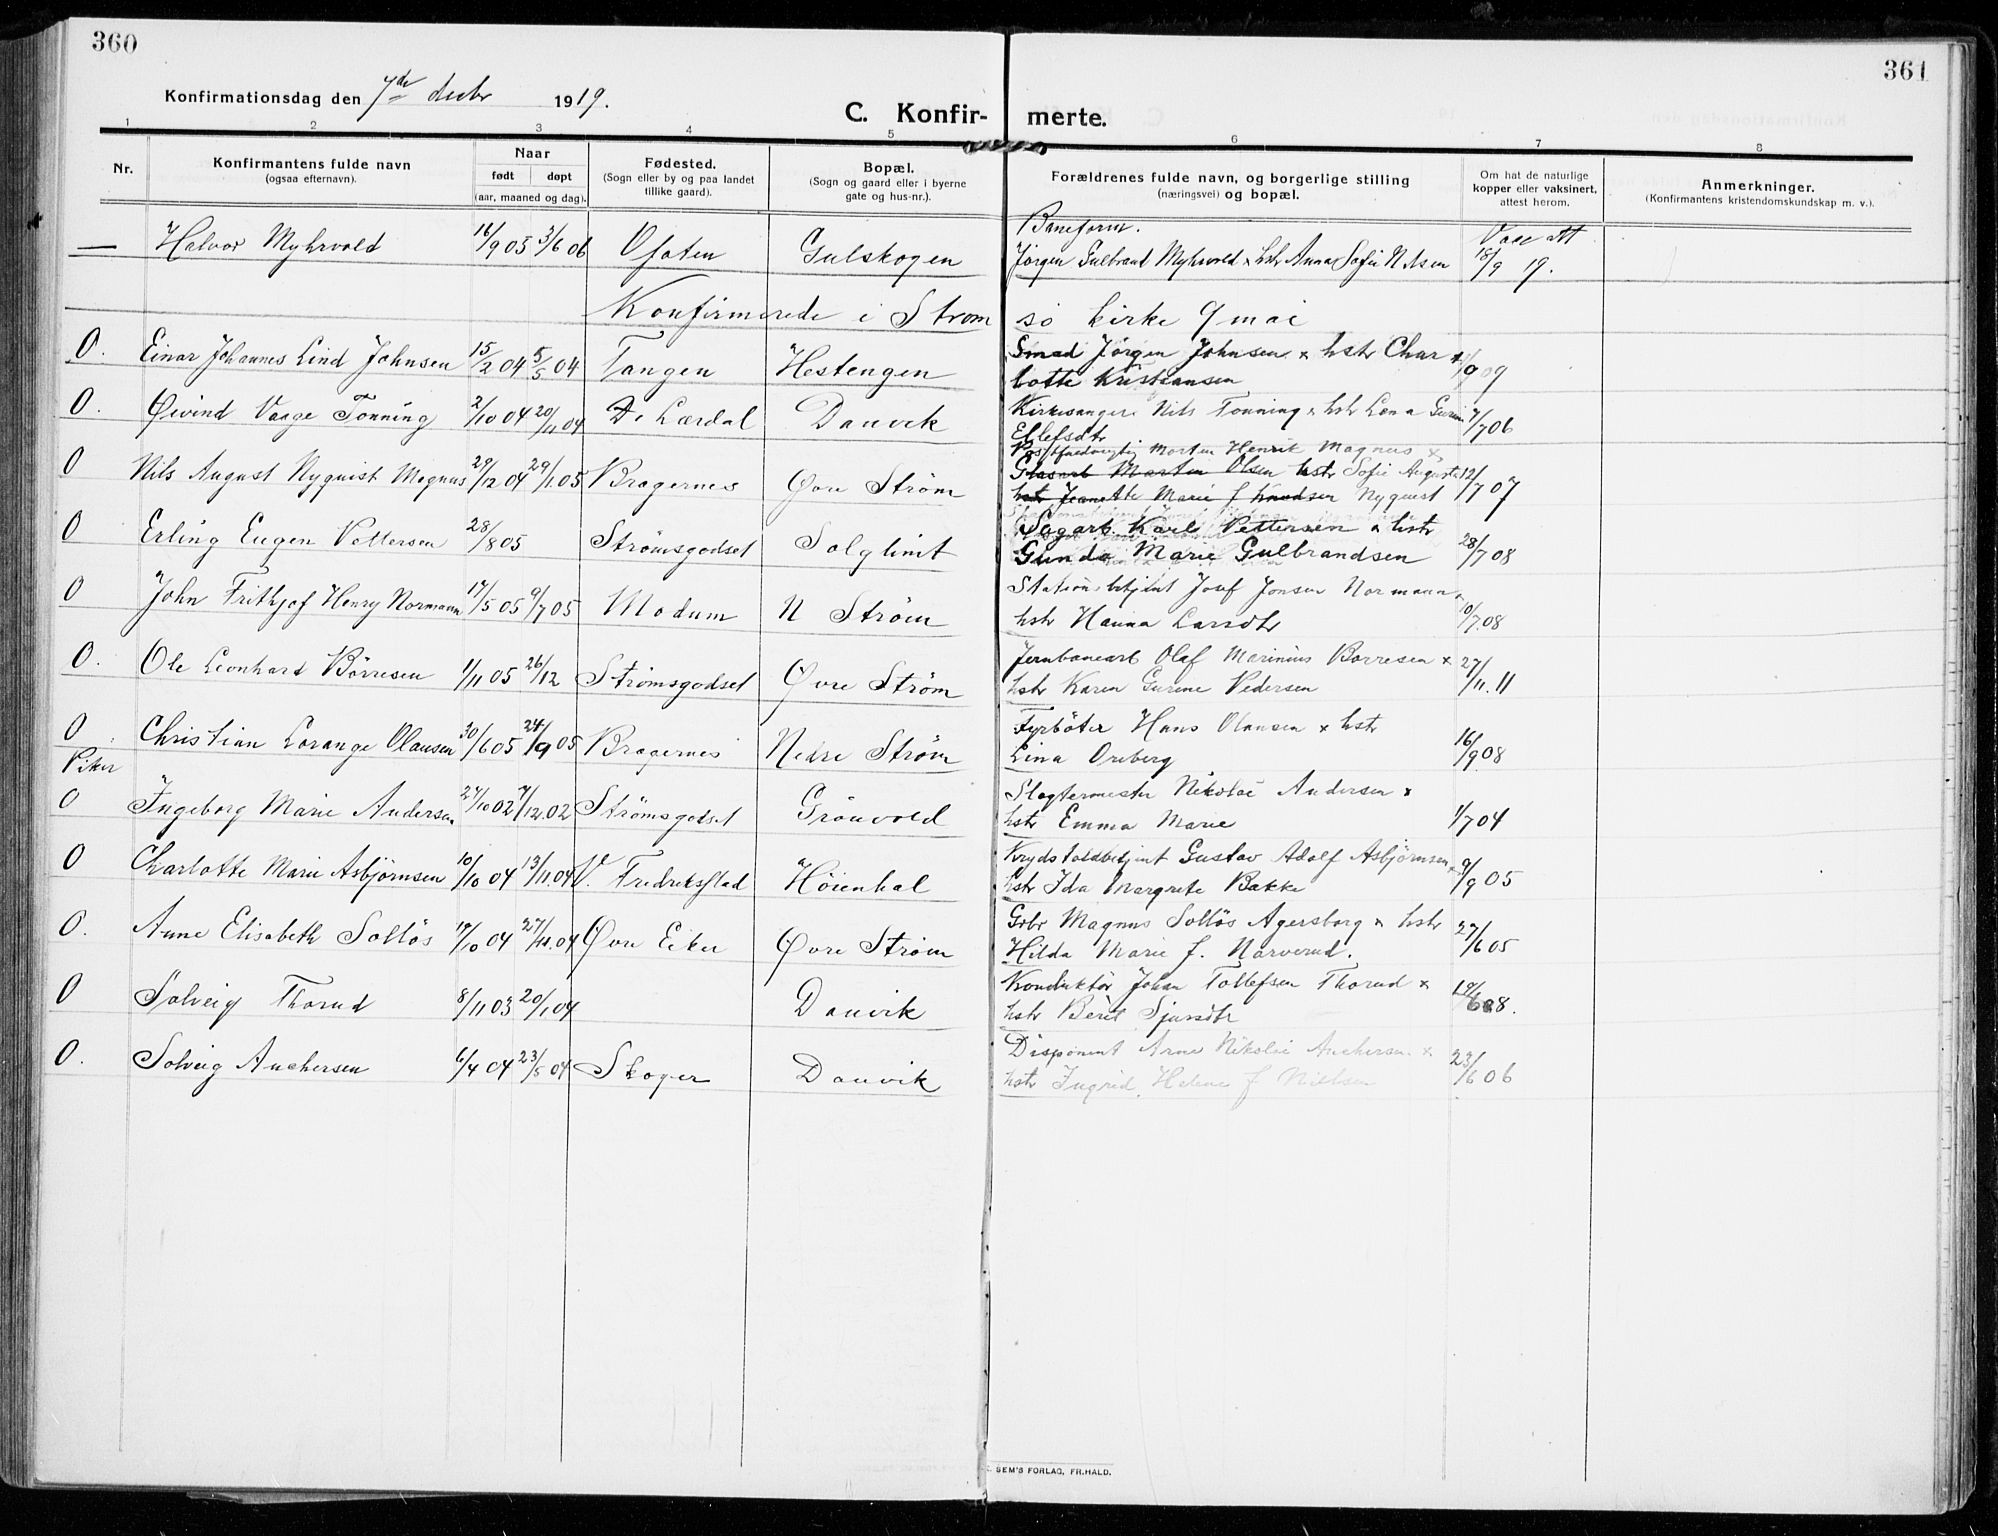 360
361
Konfirmationsdag den 7de decbr 1919.
C. Konfir- merte.
1 2 3 4 5 6 7 8
Nr.
Konfirmantens fulde navn
(ogsaa efternavn).
Naar
født døpt
(aar, maaned og dag).
Fødested.
(Sogn eller by og paa landet
tillike gaard).
Bopæl.
(Sogn og gaard eller i byerne
gate og hus-nr.).
Forældrenes fulde navn, og borgerlige stilling
(næringsvei) og bopæl.
Om hat de naturlige
kopper eller vaksinert,
attest herom.
Anmerkninger.
(Konfirmantens kristendomskundskap m. v.).
Baneform. Vacc att
— Halvor Myhrvold 16/9 05 3/6 06 Ofoten Gulskogen Jörgen Gulbrand Myhrvold x hstr Anna Sofie Nilsen 18/9 19.
Konfirmerede i Strömsö kirke 9 mai
O. Einar Johannes Lind Johnsen 15/2 04 5/5 04 Tangen Hestengen Smed Jörgen Johnsen x hstr Char
lotte Kristiansen 1/9 09
O. Øivind Vaage Tönning 2/10 04 20/11 04 Lærdal Danvik Kirkesanger Nils Tonning x hstr Lena
Ellefsdtr 7/7 06
O Nils August Nyquist Magnus 29/12 04 29/1 05 Bragernes Øvre Ström Morten Henrik Magnus x
Glasarb Morten Olsen hstr Sofie Augusta
hstr Jeanette Marie f Knudsen Nyquist 12/7 07
O Erling Eugen Pettersen 28/8 05 Strömsgodset Solglimt Sagarb. Karl Pettersen x hstr
Gunda Marie Gulbrandsen 28/7 08
O John Frithjof Henry Normann 17/5 05 9/7 05 Modum N Ström Stationsbetjent Josef Jonsen Normann x
hstr Hanna Larsdtr 10/7.08
O. Ole Leonhard Börresen 1/11 05 26/12 Strömsgodset Øvre Ström Jernbanearb Olaf Marinius Borresen x
hstr Karen Gurine Pedersen 27/11.11
O Christian Lorange Olausen 30/6 05 24/9 05 Bragernes Nedre Ström Fyrböter Hans Olausen x hstr
Lina Oreberg 16/9 08
Piker
O Ingeborg Marie Andersen 27/10 02 7/12.02 Strömsgodset Grönvold Slagtermester Nikolai Andersen x
hstr Emma Marie 1/7 04
O Charlotte Marie Asbjörnsen 10/10 04 13/11.04 V. Fredrikstad Höienhal Krydstoldbetjent Gustav Adolf Asbjörnsen x
hstr Ida Margrete Bakke 9/9 05
O. Anne Elisabeth Soltös 17/10 04 27/11.04 Øvre Eiker Øvre Ström Grbr Magnus Soltös Agersborg x hstr
Hilda Marie f. Narverud. 27/6 05
O Solveig Thorud 8/11 03 20/1 04 Danvik Konduktör Johan Tollefsen Thorud x
hstr Berit Sjursdtr 19/6 08.
O. Solveig Anchersen 6/4 04 23/5 04 Skoger Danvik Disponent Arne Nikolai Anchersen x
hstr Ingrid Helene f Nielsen 23/6 06
SEM'S FORLAG, FR.HALD.